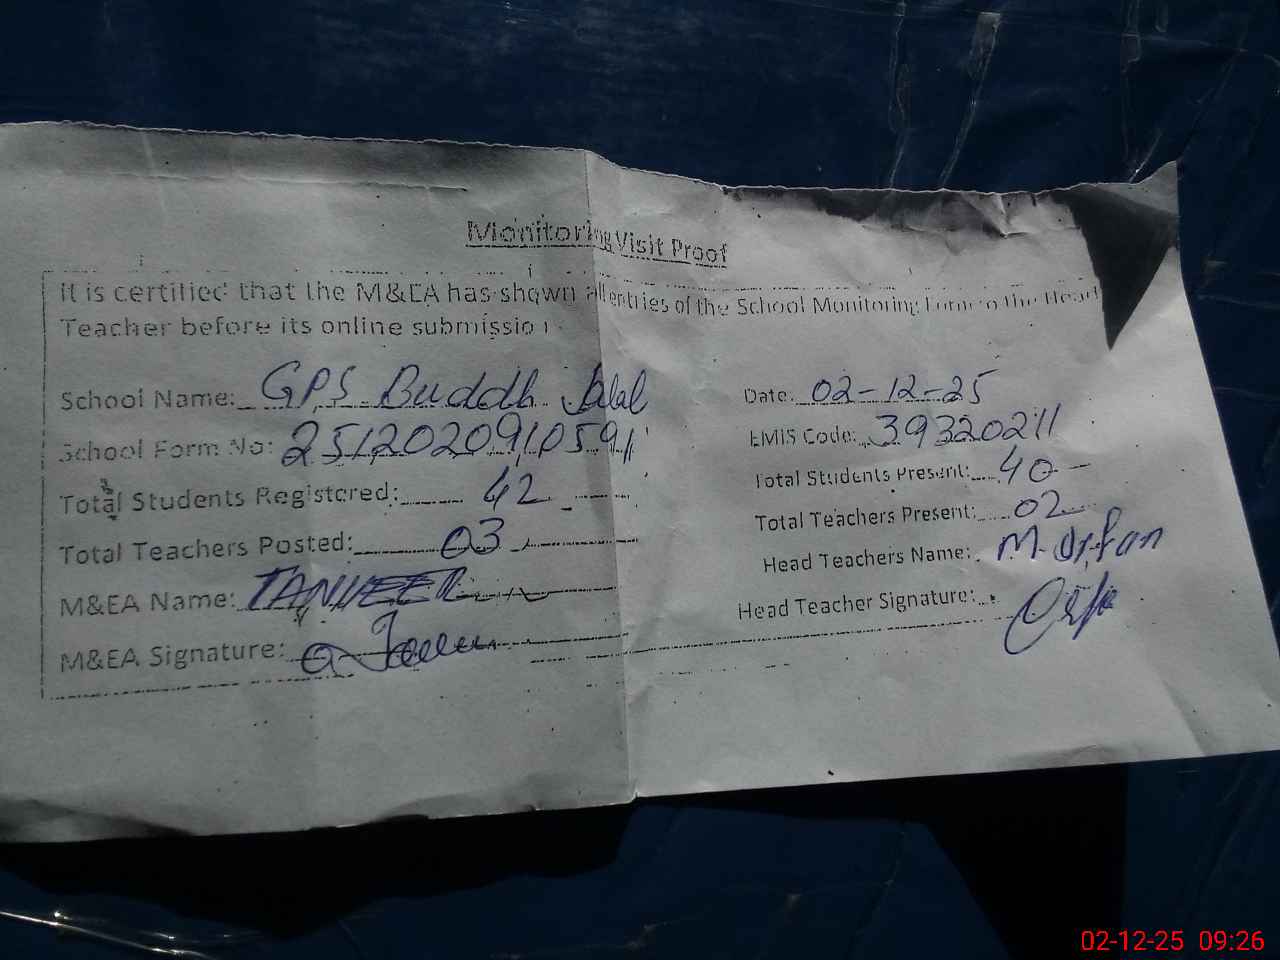 Monitoring Visit Proof
It is certified that the M&EA has shown all entries of the School Monitoring Form to the Head
Teacher before its online submission
School Name: GPS Buddh Jalal
Date: 02-12-25
School Form No: 251202091059
EMIS Code: 39320211
Total Students Registered: 42
Total Students Present: 40
Total Teachers Posted: 03
Total Teachers Present: 02
M&EA Name: TANVEER
Head Teachers Name: M. Irfan
M&EA Signature:
Head Teacher Signature:
02-12-25 09:26